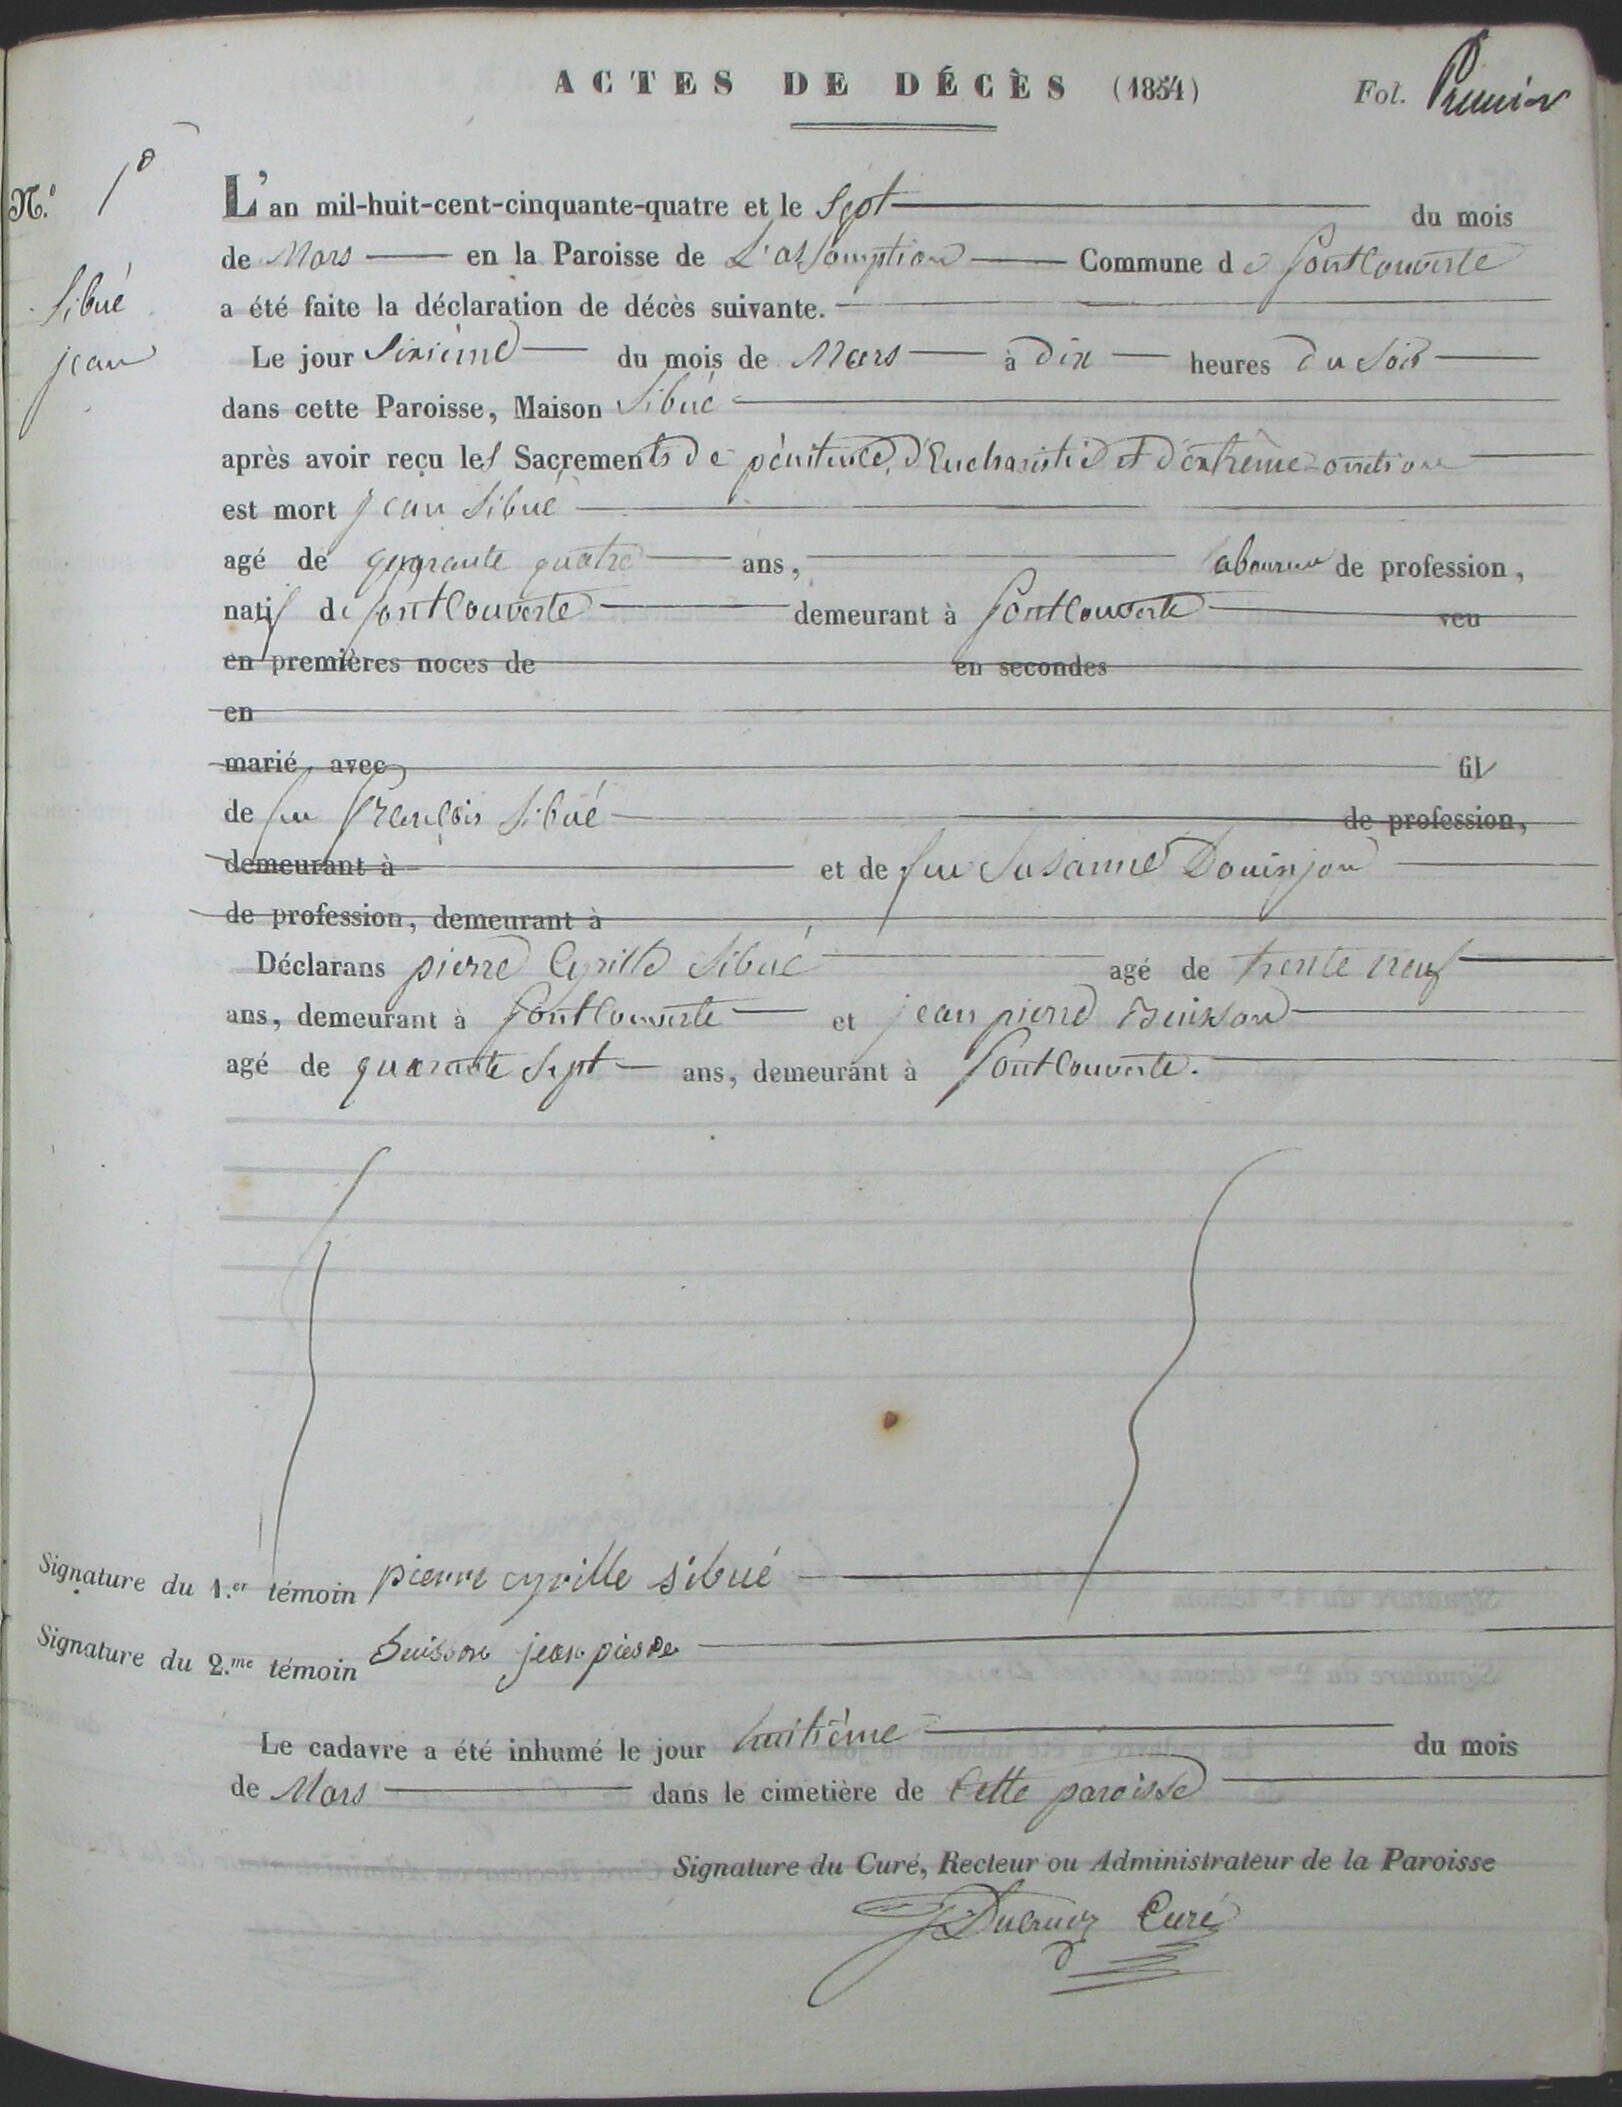 ACTES DE DÉCÈS (1854) Fol. Premier
N.° 1°
L'an mil-huit-cent-cinquante-quatre et le Sept du mois
de Mars en la Paroisse de L'assomption Commune de Fontcouverte
Sibué
a été faite la déclaration de décès suivante.
jean
Le jour Sixième du mois de Mars à Dix heures Du Soir
dans cette Paroisse, Maison Sibué
après avoir reçu les Sacrements De pénitence, d'Eucharistie et d'extrême-onction
est mort jean Sibué
agé de quarante quatre ans, laboureur de profession,
natif de fontCouverte demeurant à FontCouverte veu
en premières noces de en secondes
en
marié avec fils
de feu François Sibué de profession,
demeurant à et de feu Susanne
de profession, demeurant à
Déclarans pierre Cyrille Sibué agé de trente neuf
ans, demeurant à FontCouverte et jean pierre Buisson
agé de quarante Sept ans, demeurant à FontCouverte.
Signature du 1.er témoin pierre cyrille sibué
Signature du 2.me témoin buisson jean pierre
Le cadavre a été inhumé le jour huitième du mois
de Mars dans le cimetière de Cette paroisse
Signature du Curé, Recteur ou Administrateur de la Paroisse
Ducruez Curé